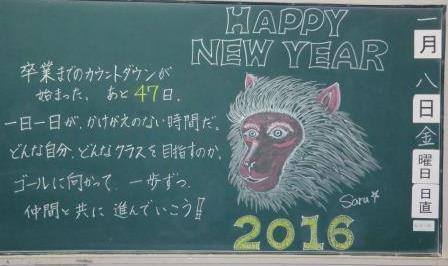 HAPPY
NEW YEAR
卒業までのカウントダウンが
始まった。あと47日。
一日一日が、かけがえのない時間だ。
どんな自分、どんなクラスを目指すのか。
ゴールに向かって、一歩ずつ
仲間と共に進んでいこう!!
Saru
2016
一月八日金曜日
日直